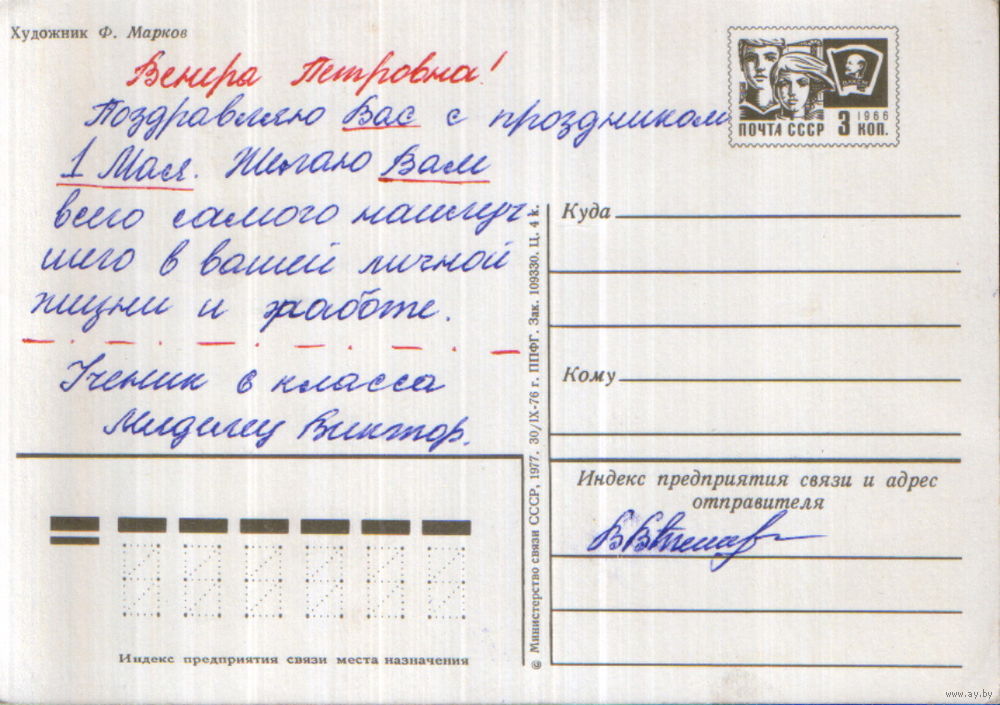 Художник Ф. Марков
Венера Петровна!
Поздравляю Вас с праздником
1 Мая. Желаю Вам
всего самого наилуч
шего в вашей личной
жизни и работе.
Ученик 6 класса
Виктор.
ПОЧТА СССР 3 КОП.
1966
ВЛКСМ
Куда
Кому
Индекс предприятия связи и адрес
отправителя
Индекс предприятия связи места назначения
© Министерство связи СССР, 1977. 30/IX-76 г. ППФГ. Зак. 109330. Ц. 4 к.
www.ay.by